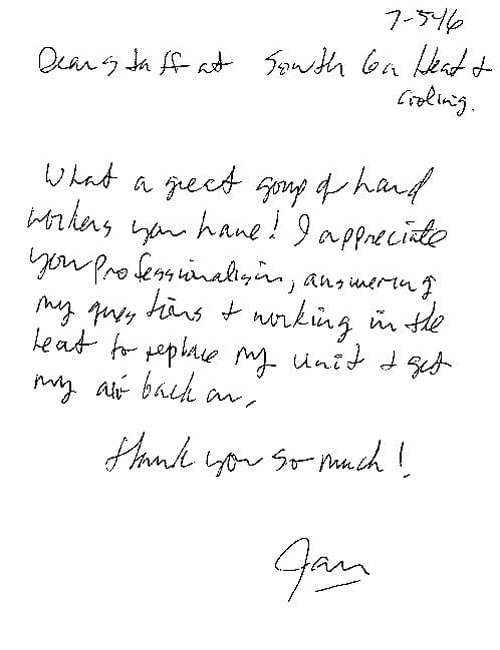 7-546
Dear staff at South Ga Heat &
cooling.
What a great group of hard
workers you have! I appreciate
your professionalism, answering
my questions & working in the
heat to replace my unit & get
my air back on,
Thank you so much!
Jan